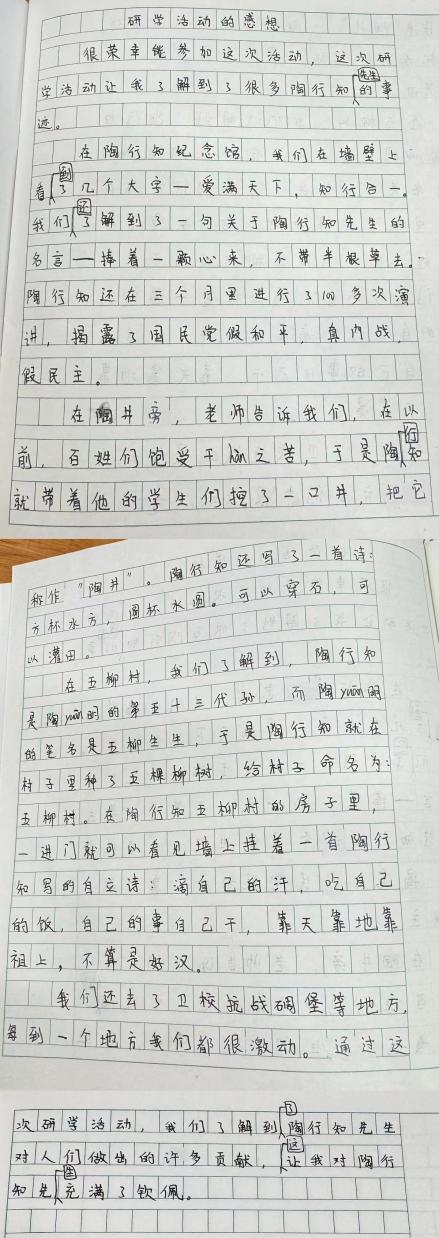 研学活动的感想
很荣幸能参加这次活动，这次研
学活动让我了解到了很多陶行知先生的事
迹。
在陶行知纪念馆，我们在墙壁上
看到了几个大字—爱满天下，知行合一。
我们还了解到了一句关于陶行知先生的
名言—捧着一颗心来，不带半根草去。
陶行知还在三个月里进行了100多次演
讲，揭露了国民党假和平，真内战，
假民主。
在陶井旁，老师告诉我们，在以
前，百姓们饱受干hàn之苦，于是陶行知
就带着他的学生们挖了一口井，把它
称作“陶井”。陶行知还写了一首诗：
方杯水方，圆杯水圆。可以穿石，可
以灌田。
在五柳村，我们了解到，陶行知
是陶yuān明的第五十三代孙，而陶yuān明
的笔名是五柳生生，于是陶行知就在
村子里种了五棵柳树，给村子命名为：
五柳村。在陶行知五柳村的房子里，
一进门就可以看见墙上挂着一首陶行
知写的自立诗：滴自己的汗，吃自己
的饭，自己的事自己干，靠天靠地靠
祖上，不算是好汉。
我们还去了卫校抗战碉堡等地方，
每到一个地方我们都很激动。通过这
次研学活动，我们了解到了陶行知先生
对人们做出的许多贡献，这让我对陶行
知先生充满了钦佩。